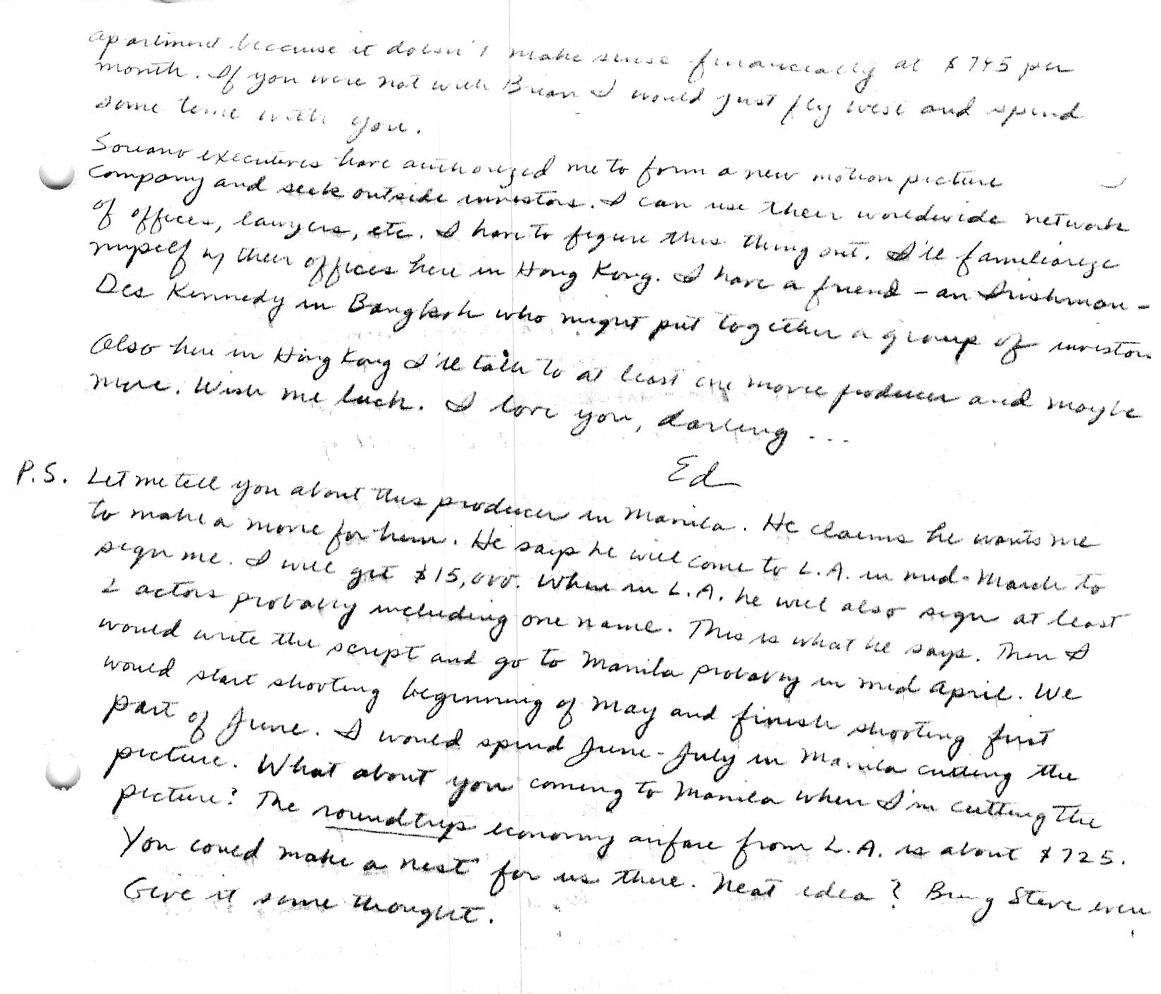 apartment because it doesn't make sense financially at $745 per
month. If you were not with Brian I would just fly west and spend
some time with you.
Soriano executives have authorized me to form a new motion picture
company and seek outside investors. I can use their worldwide network
of offices, lawyers, etc. I have to figure this thing out. I'll familiarize
myself w/ their offices here in Hong Kong. I have a friend - an Irishman -
Des Kennedy in Bangkok who might put together a group of investors
Also here in Hong Kong I'll talk to at least one movie producer and maybe
more. Wish me luck. I love you, darling ...
Ed
P.S. Let me tell you about this producer in Manila. He claims he wants me
to make a movie for him. He says he will come to L.A. in mid-March to
sign me. I will get $15,000. When in L.A. he will also sign at least
2 actors probably including one name. This is what he says. Then I
would write the script and go to Manila probably in mid April. We
would start shooting beginning of May and finish shooting first
part of June. I would spend June-July in Manila cutting the
picture. What about you coming to Manila when I'm cutting the
picture? The roundtrip economy airfare from L.A. is about $725.
You could make a nest for us there. Neat idea? Bring Steve even
Give it some thought.